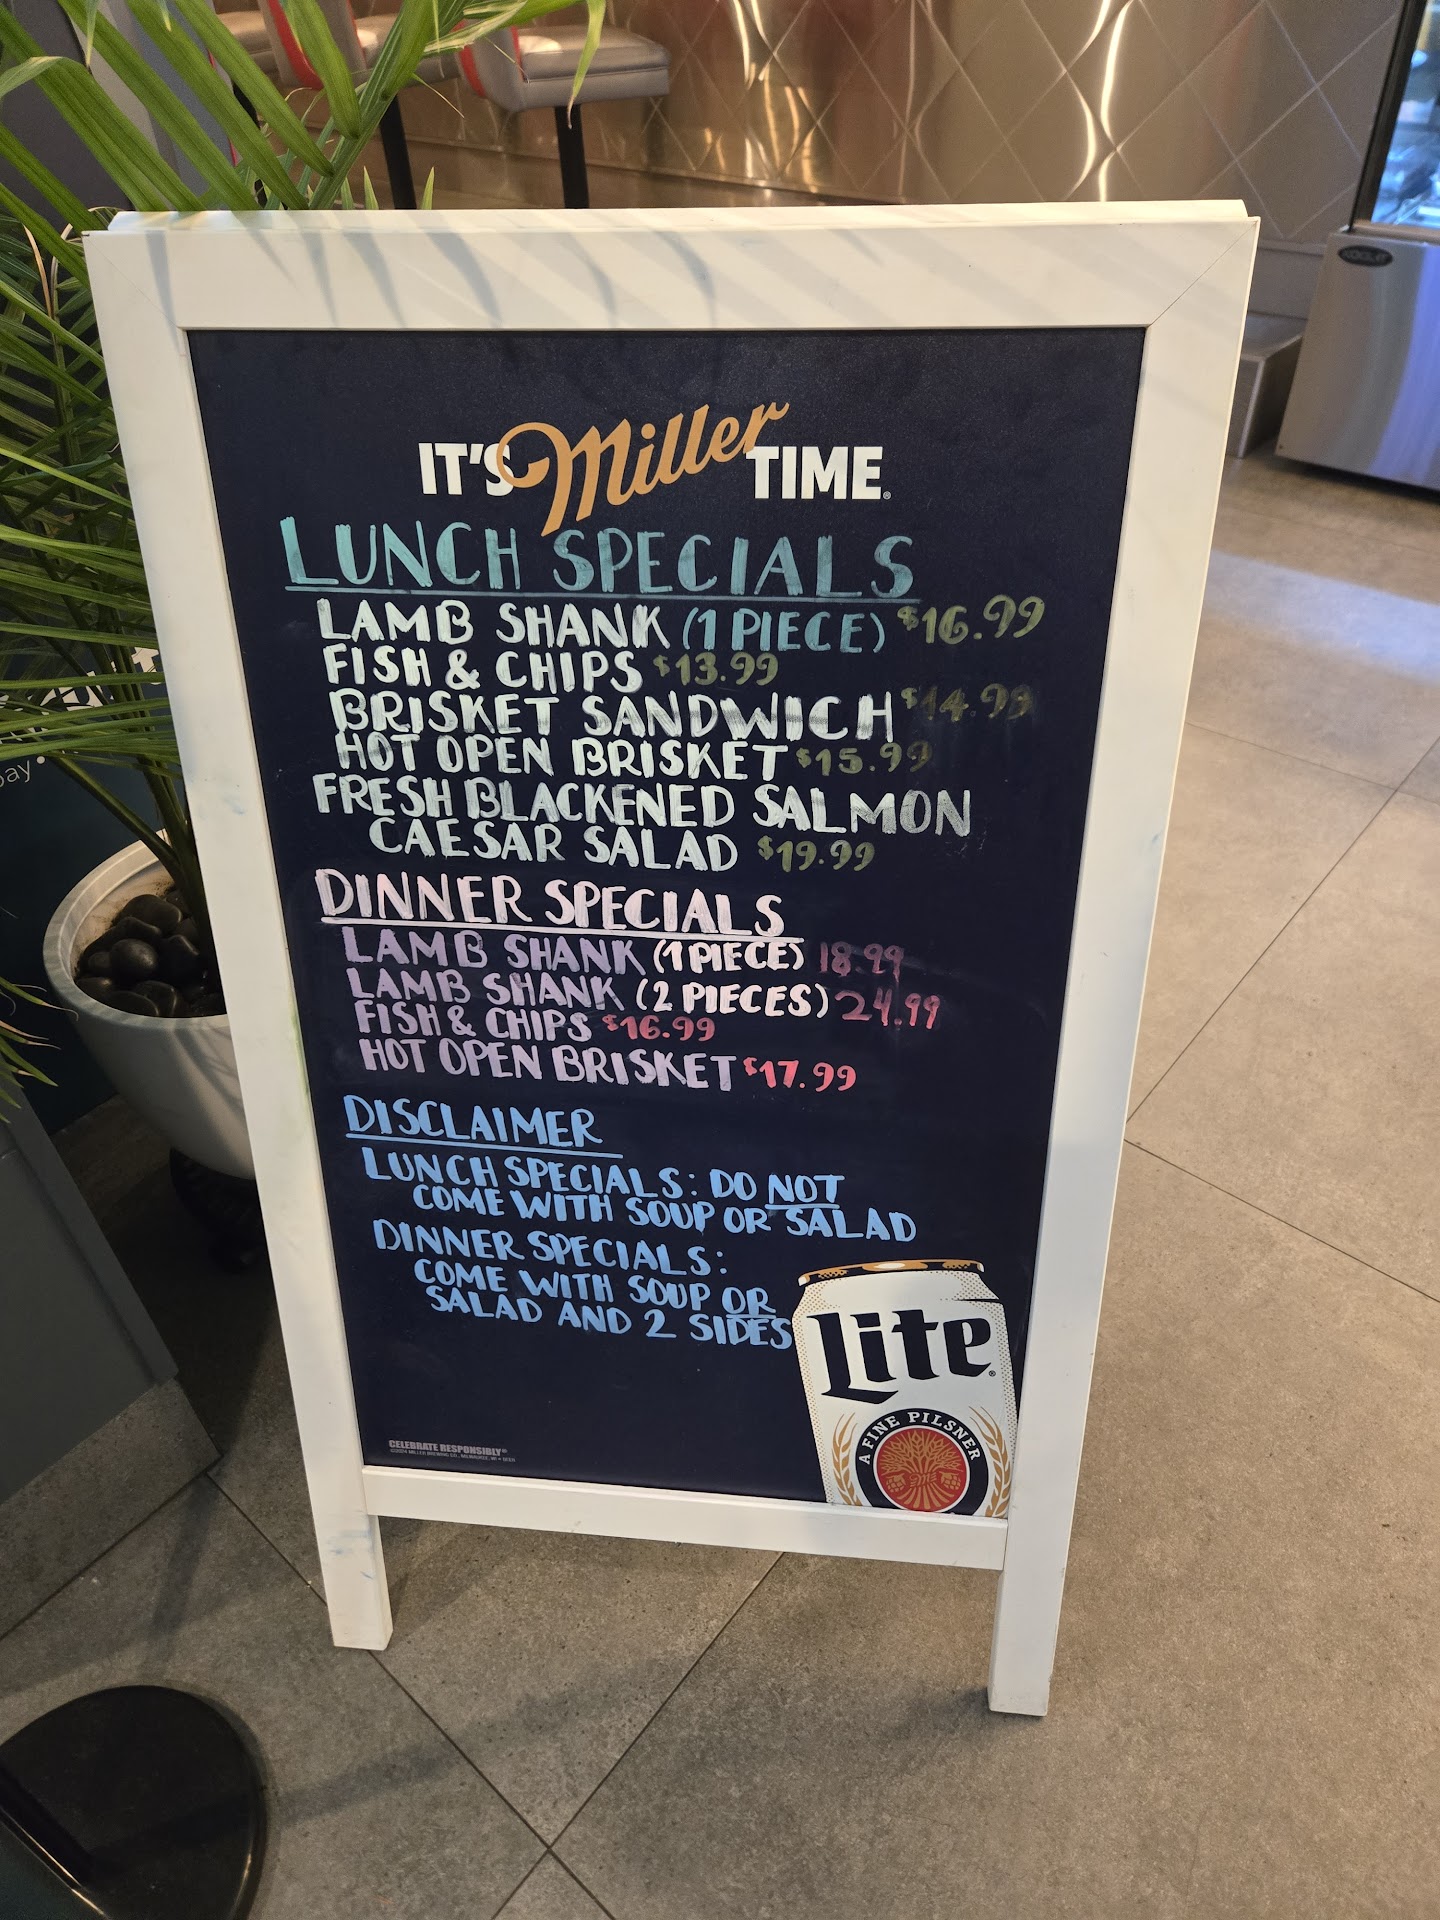 IT'S Miller TIME®
LUNCH SPECIALS
LAMB SHANK (1 PIECE) $16.99
FISH & CHIPS $13.99
BRISKET SANDWICH $14.99
HOT OPEN BRISKET $15.99
FRESH BLACKENED SALMON
CAESAR SALAD $19.99
DINNER SPECIALS
LAMB SHANK (1 PIECE) 18.99
LAMB SHANK (2 PIECES) 24.99
FISH & CHIPS $16.99
HOT OPEN BRISKET $17.99
DISCLAIMER
LUNCH SPECIALS: DO NOT
COME WITH SOUP OR SALAD
DINNER SPECIALS:
COME WITH SOUP OR
SALAD AND 2 SIDES
Lite®
A FINE PILSNER
CELEBRATE RESPONSIBLY®